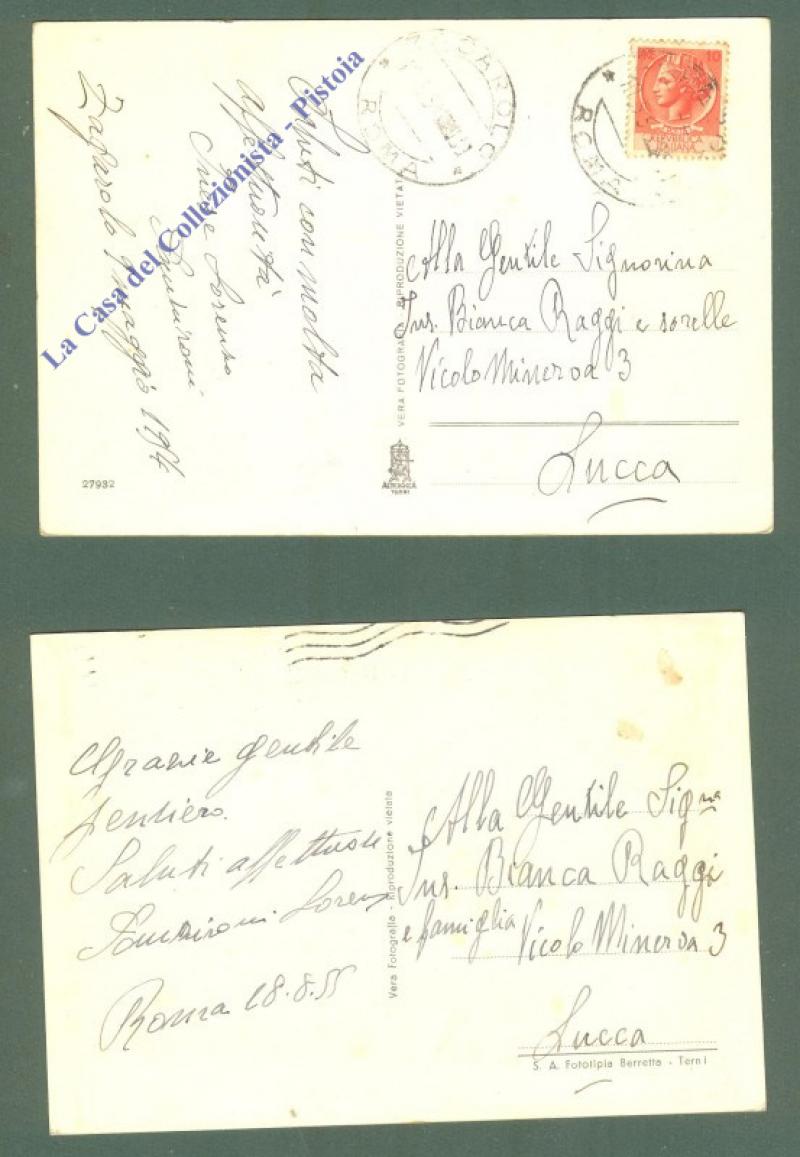 La Casa del Collezionista - Pistoia
Saluti con molta
affettuosità
Lorenzo
Zagarolo maggio
27932
VERA FOTOGRAFIA - RIPRODUZIONE VIETATA
TERNI
ROMA
ROMA
10
REPVBBLICA
ITALIANA
Alla Gentile Signorina
Ins. Bianca Raggi e sorelle
Vicolo Minerva 3
Lucca
Grazie gentile
pensiero.
Saluti affettuosi
Roma 28.8.55
Vera Fotografia - Riproduzione vietata
Alla Gentile Sigˡⁿᵃ
Ins. Bianca Raggi
e famiglia Vicolo Minerva 3
Lucca
S. A. Fototipia Berretta - Terni